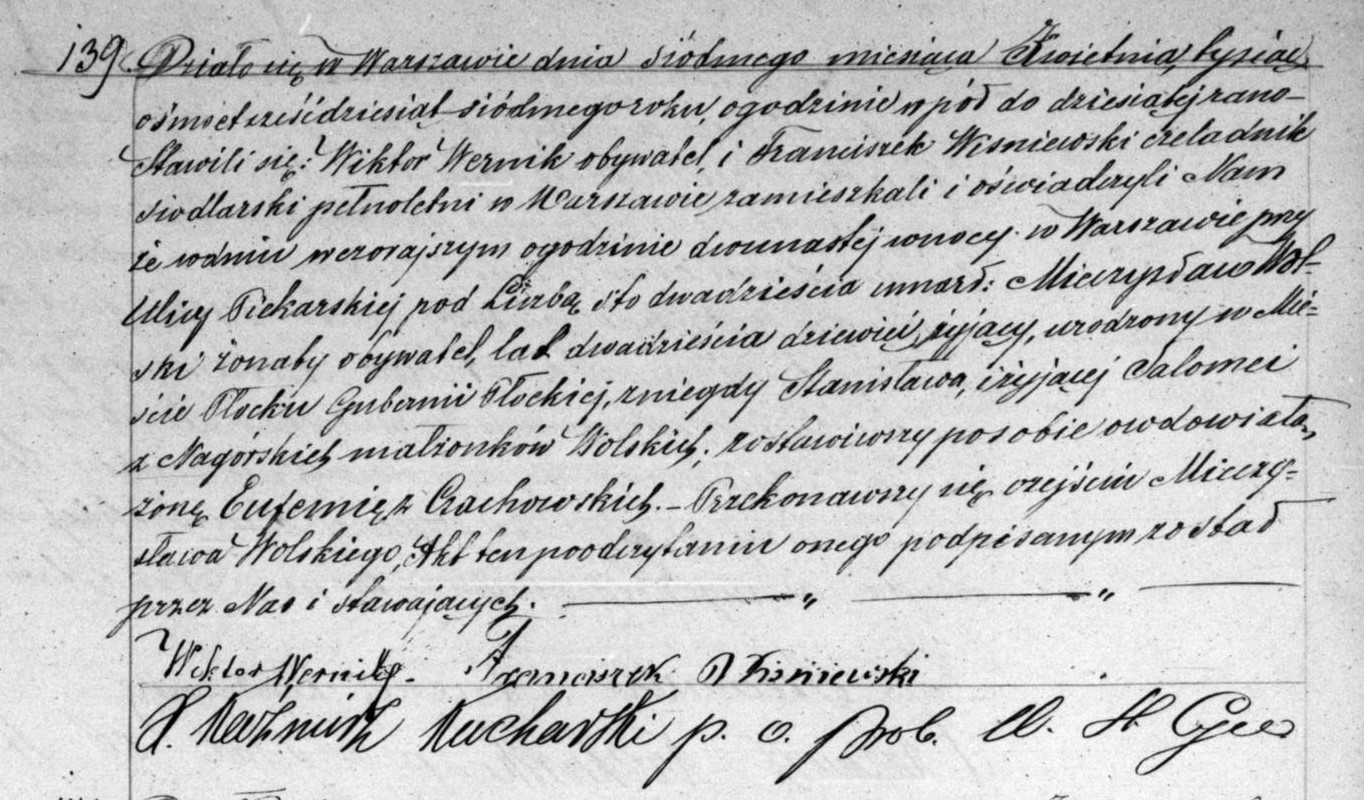 139. Działo się w Warszawie dnia siódmego miesiąca Kwietnia, tysiąc
ośmset sześćdziesiąt siódmego roku, o godzinie w pół do dziesiątej rano –
Stawili się: Wiktor Wernik obywatel, i Franciszek Wiśniewski czeladnik
siodlarski pełnoletni w Warszawie zamieszkali i oświadczyli Nam
że w dniu wczorajszym o godzinie dwunastej w nocy w Warszawie przy
Ulicy Piekarskiej pod Liczbą sto dwadzieścia umarł: Mieczysław Wol-
ski żonaty obywatel, lat dwadzieścia dziewięć żyjący, urodzony w Mie-
ście Płocku Gubernii Płockiej, z niegdy Stanisława, i żyjącej Salomei
z Nagórskich małżonków Wolskich; zostawiwszy po sobie owdowiałą
żonę Eufemię z Czachowskich. – Przekonawszy się o zejściu Mieczy-
sława Wolskiego, Akt ten po odczytaniu onego podpisanym został
przez Nas i stawających. — „ — „ —
Wiktor Wernik. Franciszek Wiśniewski
X. Kaźmirz Kucharski p. o. prob. U. S. C.